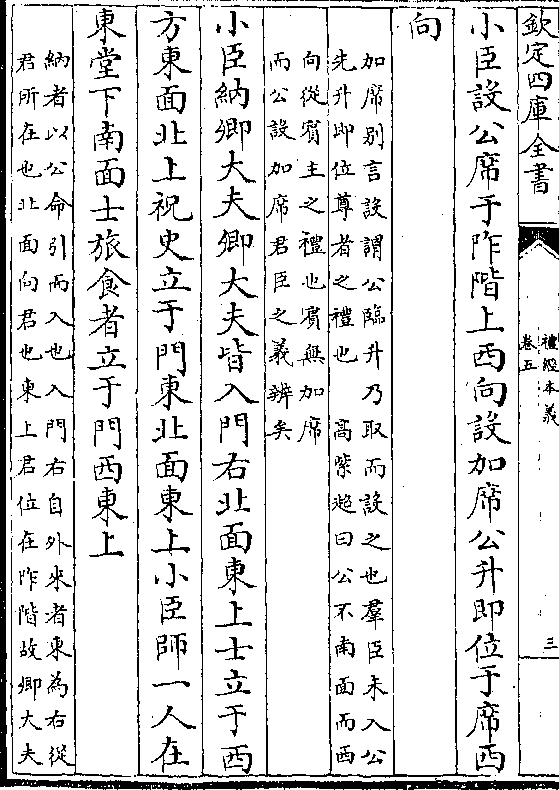 欽定四庫全書
禮經本義
卷五
三
小臣設公席于阼階上西向設加席公升即位于席西
向
加席别言設謂公臨升乃取而設之也羣臣未入公
先升即位尊者之禮也　高紫超曰公不南面而西
向從賓主之禮也賓無加席
而公設加席君臣之義辨矣
小臣納卿大夫卿大夫皆入門右北面東上士立于西
方東面北上祝史立于門東北面東上小臣師一人在
東堂下南面士旅食者立于門西東上
納者以公命引而入也入門右自外來者東為右從
君所在也北面向君也東上君位在阼階故卿大夫